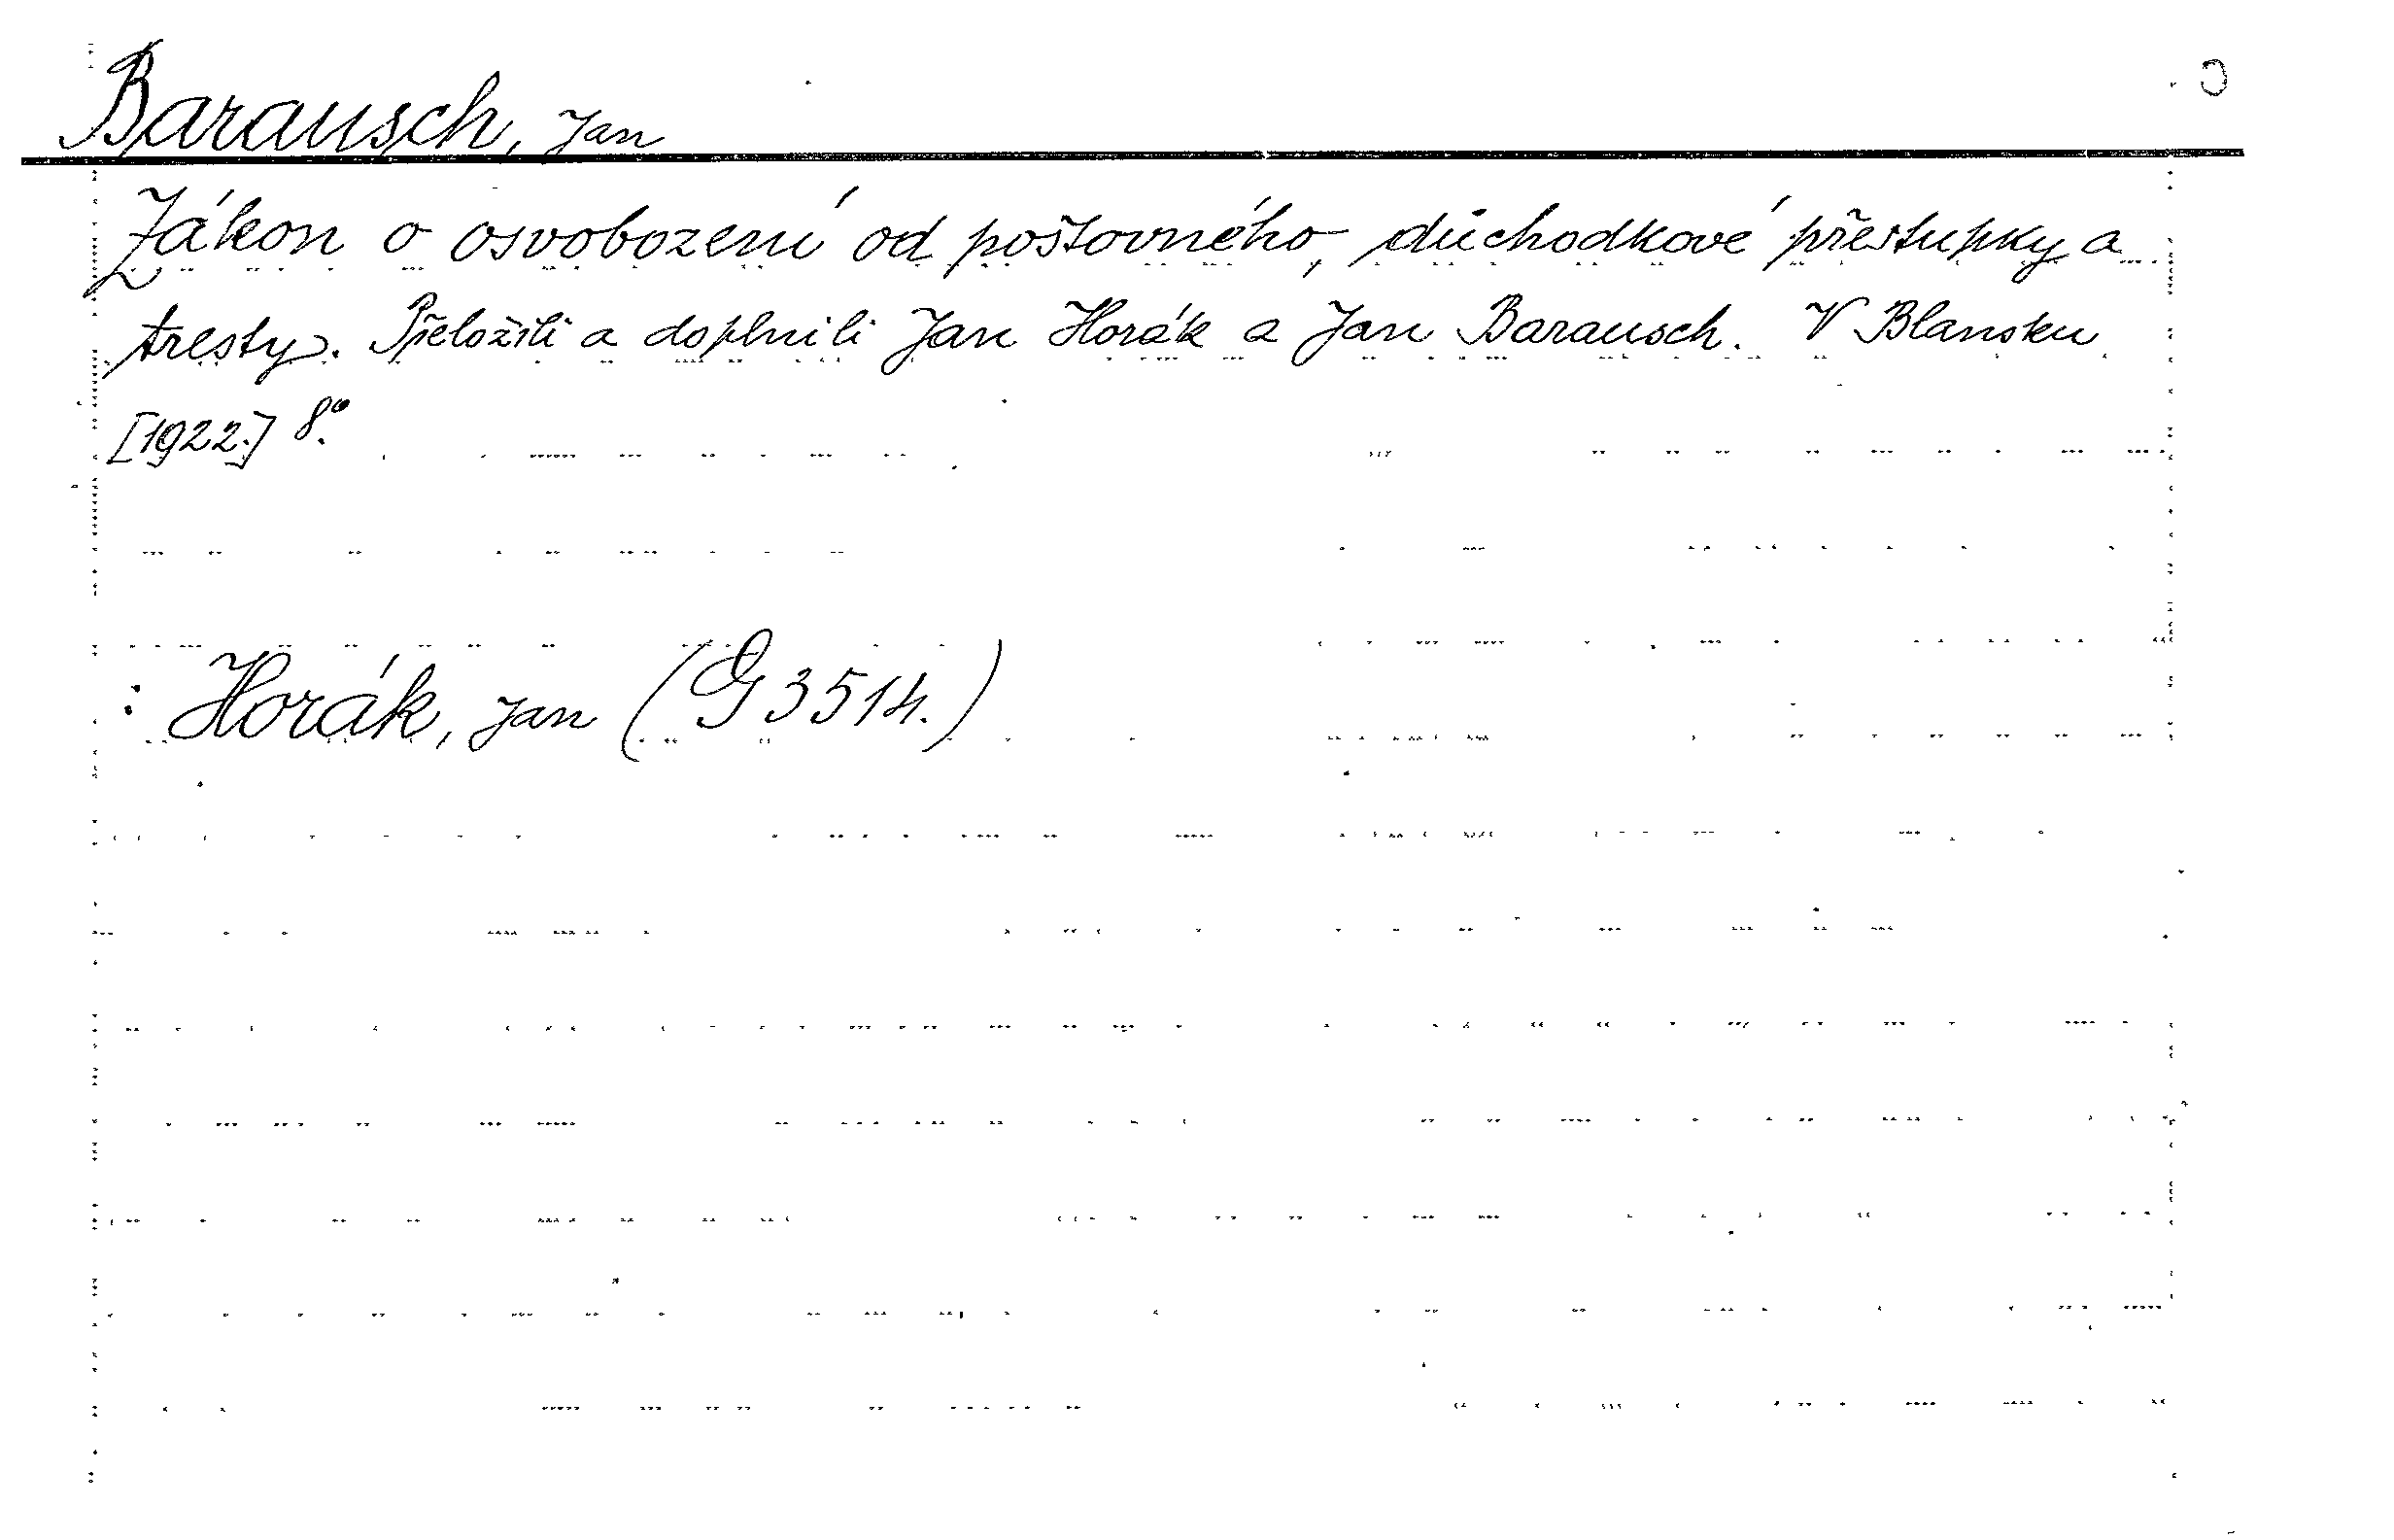 Barausch, Jan
Zákon o osvobození od poštovného, důchodkové přestupky a
tresty. Přeložili a doplnili Jan Horák a Jan Barausch. V Blansku
[1922.] 8º.
: Horák, Jan (G 3514.)